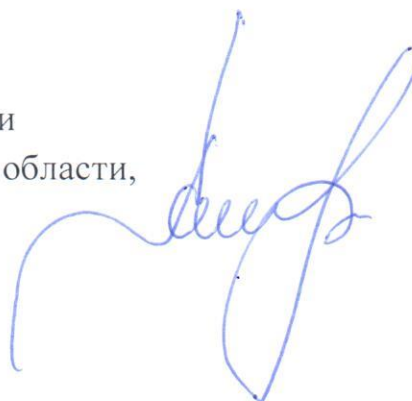 и
области,